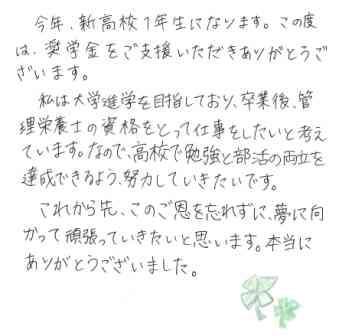 今年、新高校1年生になります。この度
は、奨学金をご支援いただきありがとうご
ざいます。
私は大学進学を目指しており、卒業後、管
理栄養士の資格をとって仕事をしたいと考え
ています。なので、高校で勉強と部活の両立を
達成できるよう、努力していきたいです。
これから先、このご恩を忘れずに、夢に向
かって頑張っていきたいと思います。本当に
ありがとうございました。